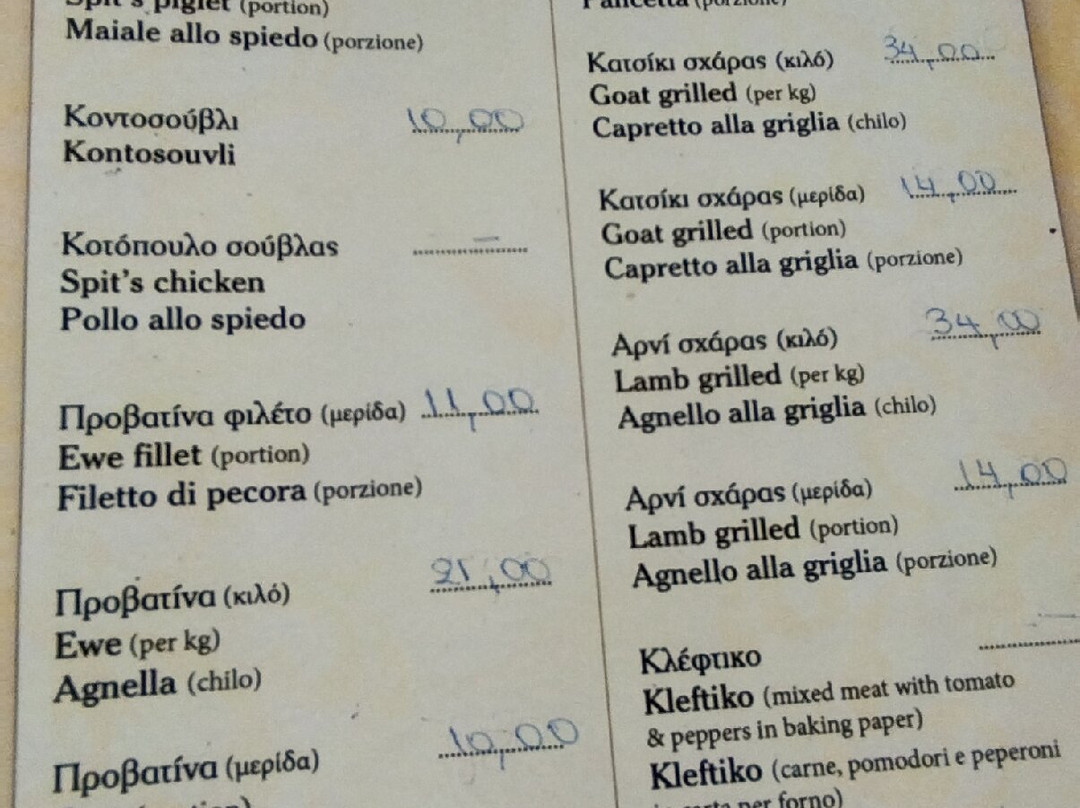 Spit's piglet (portion)
Maiale allo spiedo (porzione)
Κοντοσούβλι 10,00
Kontosouvli
Κοτόπουλο σούβλας –
Spit's chicken
Pollo allo spiedo
Προβατίνα φιλέτο (μερίδα) 11,00
Ewe fillet (portion)
Filetto di pecora (porzione)
Προβατίνα (κιλό) 21,00
Ewe (per kg)
Agnella (chilo)
Προβατίνα (μερίδα) 10,00
Pancetta (porzione)
Κατσίκι σχάρας (κιλό) 34,00
Goat grilled (per kg)
Capretto alla griglia (chilo)
Κατσίκι σχάρας (μερίδα) 14,00
Goat grilled (portion)
Capretto alla griglia (porzione)
Αρνί σχάρας (κιλό) 34,00
Lamb grilled (per kg)
Agnello alla griglia (chilo)
Αρνί σχάρας (μερίδα) 14,00
Lamb grilled (portion)
Agnello alla griglia (porzione)
Κλέφτικο –
Kleftiko (mixed meat with tomato
& peppers in baking paper)
Kleftiko (carne, pomodori e peperoni
per forno)